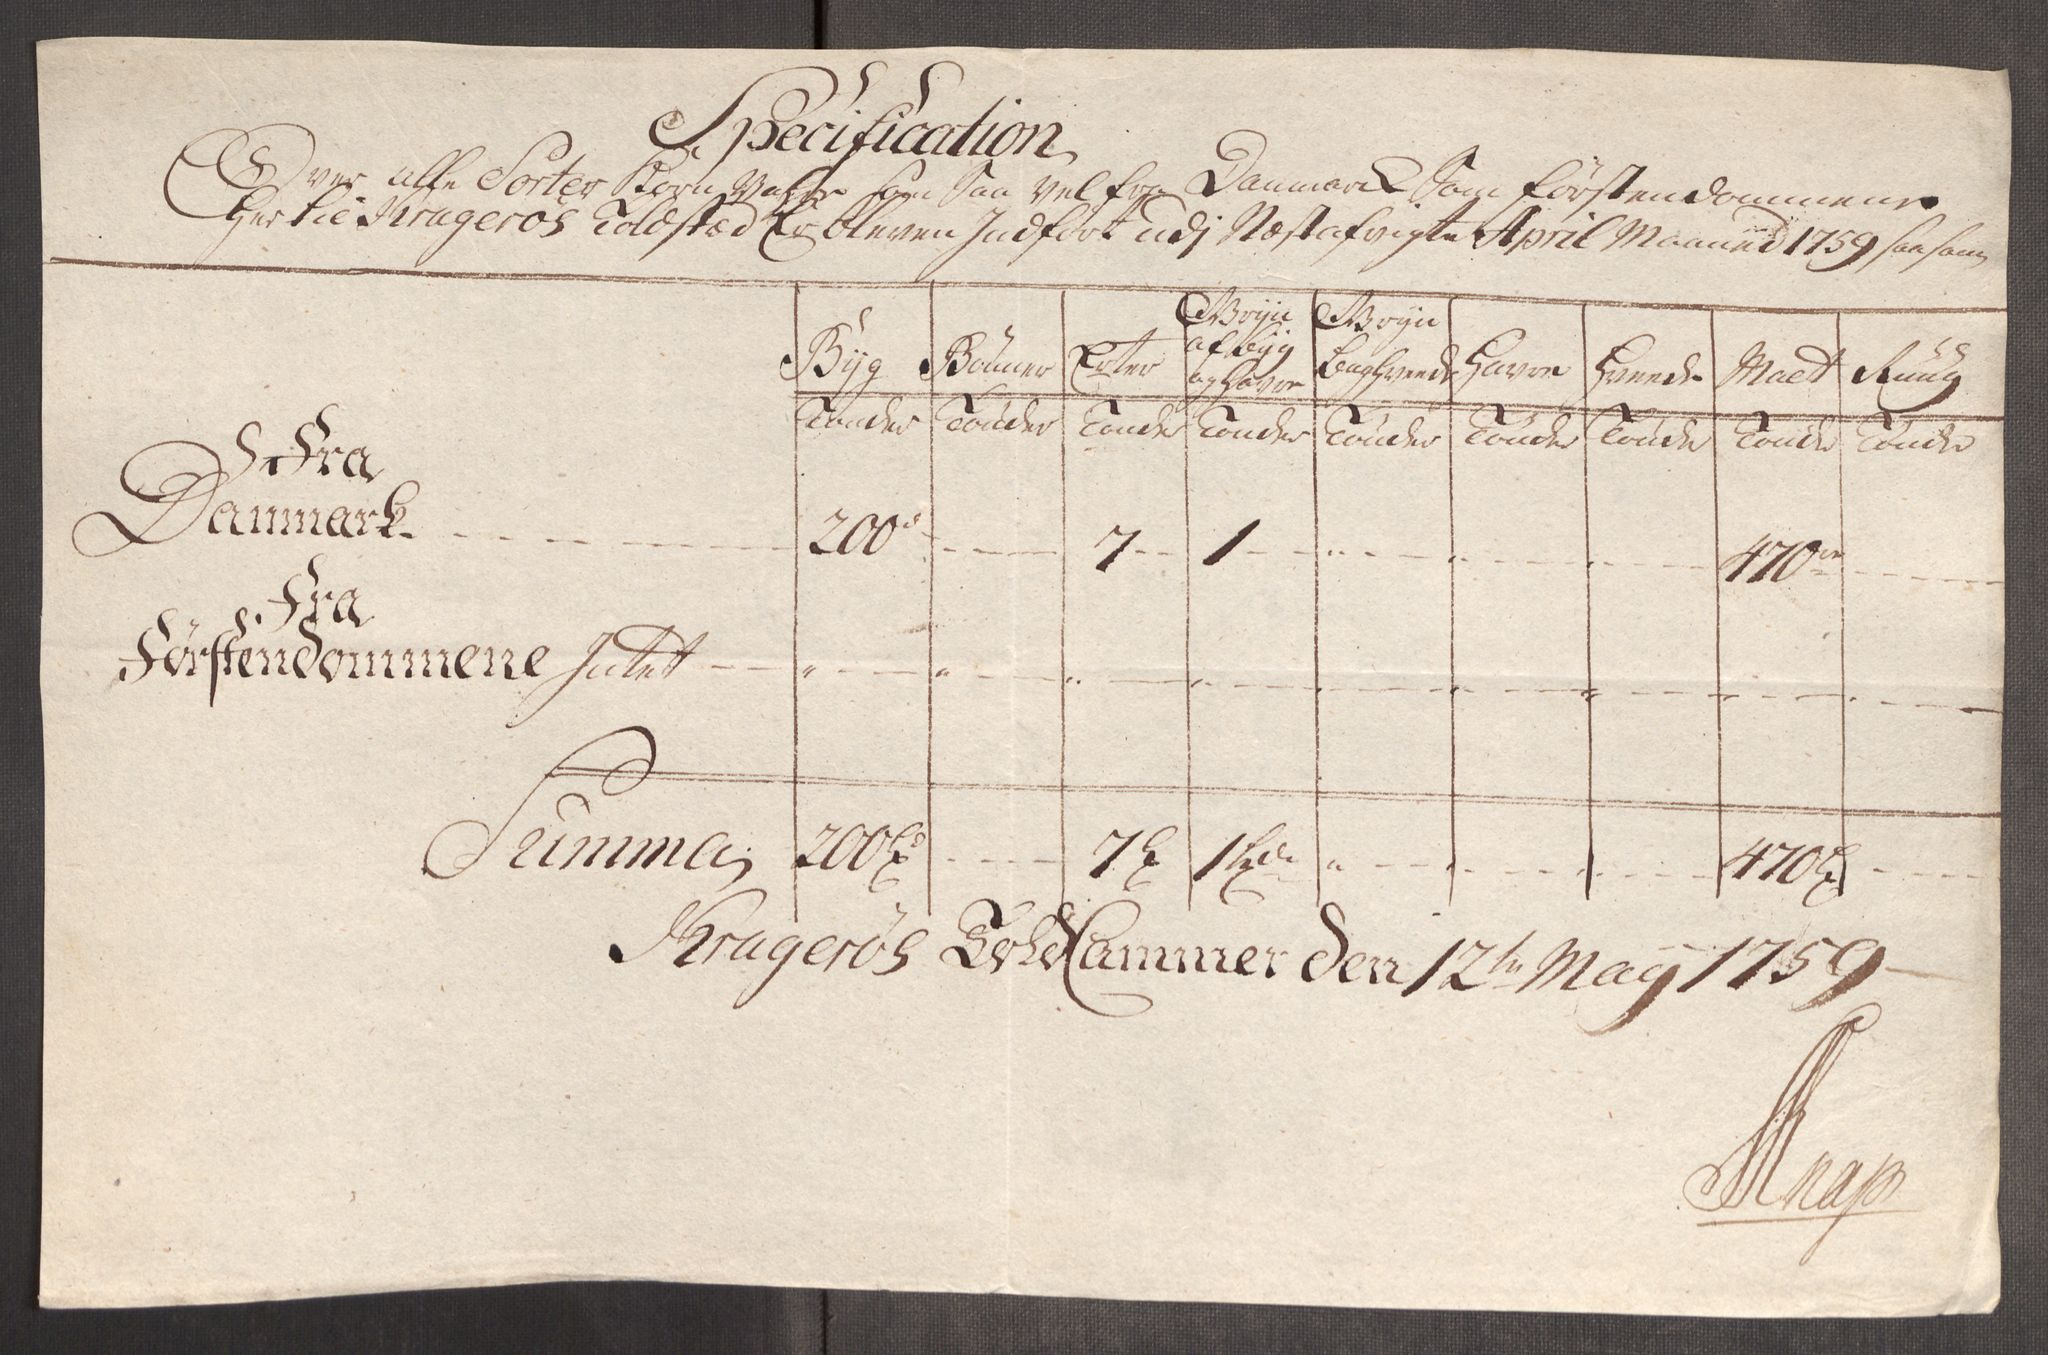 Specification
Over alle Sorter Korn Vahre som Saa vel fra Danmark Som förstendommene
her til Krageröes Toldsted Er bleven Indfört udj Næstafvigte April Maaned 1759 saasom
Byg Bönner Erter Gryn af byg og Havre Gryn boghveede Havre Hveede Malt Ruug
Tönder Tönder Tönder Tönder Tönder Tönder Tönder Tönder Tönder
Fra
Danmark 200 7 1 470
Fra
Förstendommene Intet
Summa 200 7 1 470
Krageröes Told Cammer den 12te May 1759
Knap